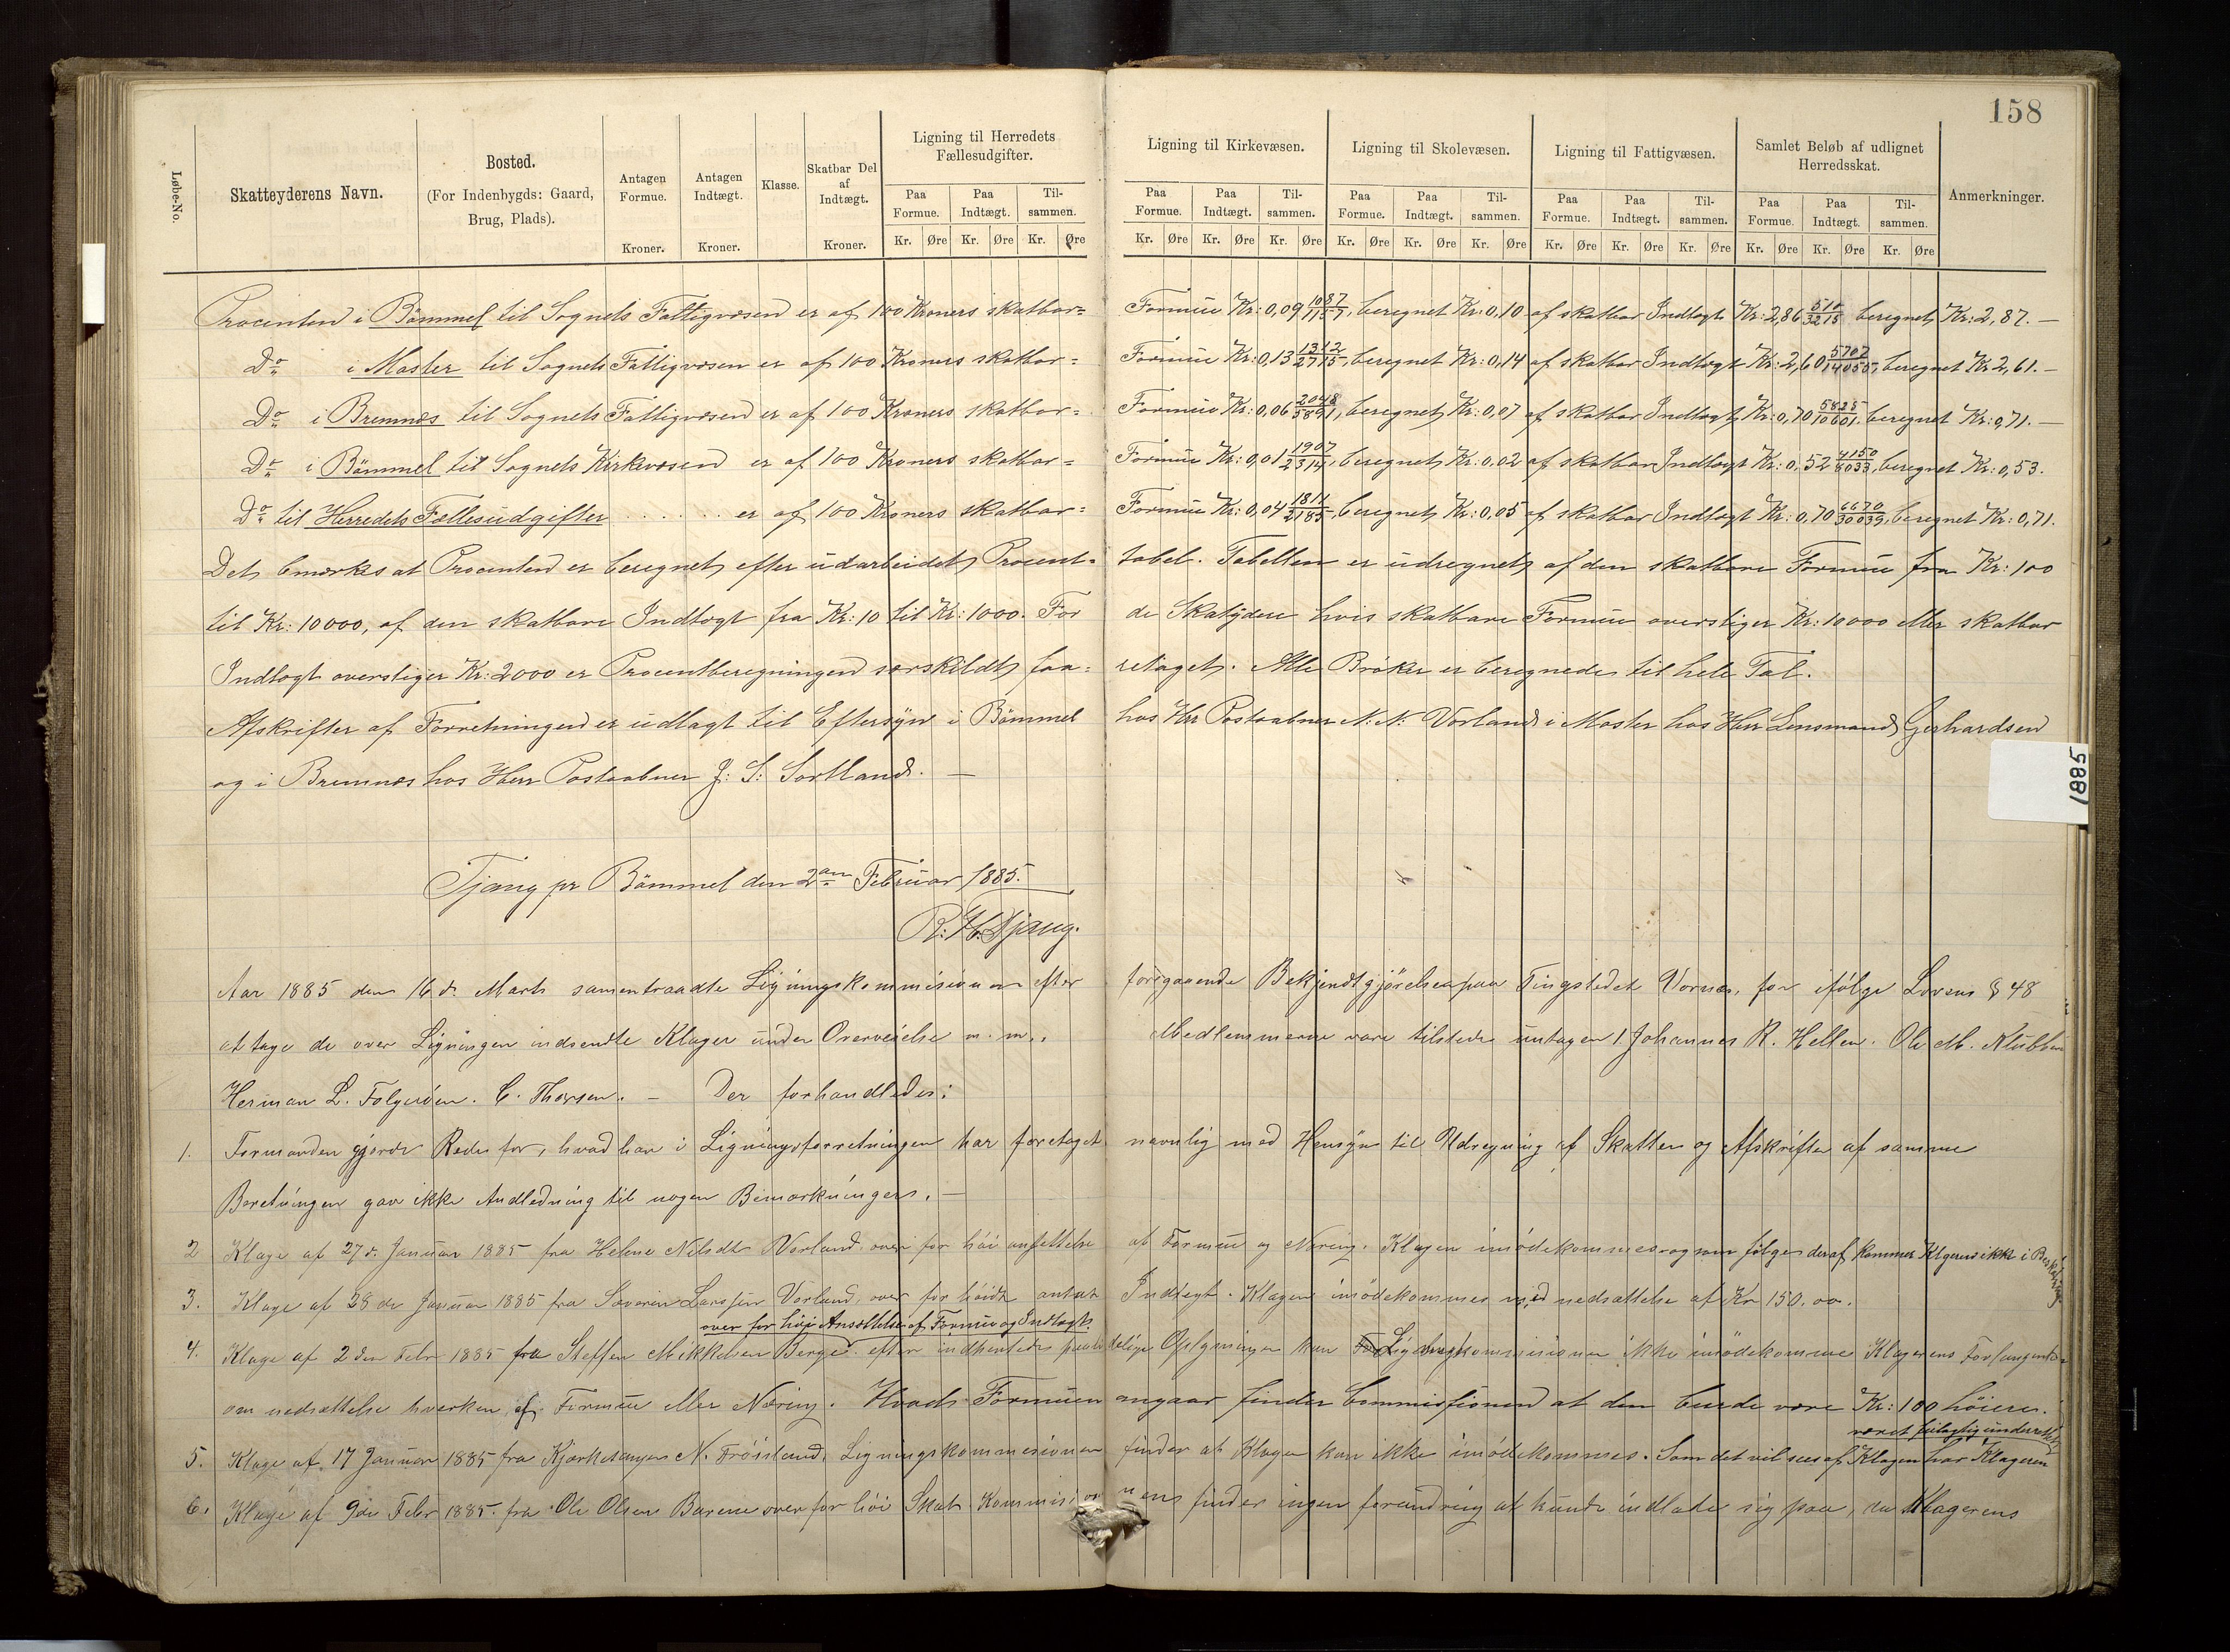 158
Løbe-No.
Skatteyderens Navn.
Bosted.
(For Indenbygds: Gaard,
Brug, Plads).
Antagen
Formue.
Kroner.
Antagen
Indtægt.
Kroner.
Klasse.
Skatbar Del
af
Indtægt.
Kroner.
Ligning til Herredets
Fællesudgifter.
Paa Formue. Paa Indtægt. Tilsammen.
Kr. Øre Kr. Øre Kr. Øre
Ligning til Kirkevæsen.
Paa Formue. Paa Indtægt. Tilsammen.
Kr. Øre Kr. Øre Kr. Øre
Ligning til Skolevæsen.
Paa Formue. Paa Indtægt. Tilsammen.
Kr. Øre Kr. Øre Kr. Øre
Ligning til Fattigvæsen.
Paa Formue. Paa Indtægt. Tilsammen.
Kr. Øre Kr. Øre Kr. Øre
Samlet Beløb af udlignet
Herredsskat.
Paa Formue. Paa Indtægt. Tilsammen.
Kr. Øre Kr. Øre Kr. Øre
Anmerkninger.
Procenten i Bömmel til Sognets Fattigvæsen er af 100 Kroners skatbar= Formue Kr: 0,09 1087/1157, beregnet Kr: 0,10 af skatbar Indtægt Kr: 2,86 515/3215 beregnet Kr: 2,87. —
Do i Moster til Sognets Fattigvæsen er af 100 Kroners skatbar= Formue Kr: 0,13 1312/2715, beregnet Kr: 0,14 af skatbar Indtægt Kr: 2,60 5707/14055, beregnet Kr 2,61. —
Do i Bremnes til Sognets Fattigvæsen er af 100 Kroners skatbar= Formue Kr: 0,06 2048/5891, beregnet Kr: 0,07 af skatbar Indtægt Kr: 0,70 5825/10601. beregnet Kr: 0,71. —
Do i Bömmel til Sognets Kirkevæsen er af 100 Kroners skatbar= Formue Kr: 0,01 1907/2314, beregnet Kr: 0,02 af skatbar Indtægt Kr: 0,52 4150/8033, beregnet Kr: 0,53.
Do til Herredets Fællesudgifter . . . . . er af 100 Kroners skatbar= Formue Kr: 0,04 1811/2185, beregnet Kr: 0,05 af skatbar Indtægt Kr: 0,70 6670/30039, beregnet Kr: 0,71.
Det bmærkes at Procenten er beregnet efter udarbeidet Procent= tabel. Tabellen er udregnet af den skatbare Formue fra Kr: 100
til Kr: 10000, af den skatbare Indtægt fra Kr: 10 til Kr: 1000. For de Skatydere hvis skatbare Formue overstiger Kr: 10000 eller skatbar
Indtægt overstiger Kr: 2000 er Procentberegningen særskildt faa= retaget. Alle Bröker er beregnede til hele Tal.
Afskrifter af Forretningen er udlagt til Eftersyn i Bömmel hos Herr Postaabner N: N: Vorland i Moster hos Herr Lensmand Gerhardsen
og i Bremnes hos Herr Postaabner J: S: Sortland. —
1885
Tjang pr Bömmel den 2den Februar 1885.
R: H. Tjang.
Aar 1885 den 16 d. Marts samentraadte Ligningskommisionen efter foregaaende Bekjendtgjörelse paa Tingstedet Vornes, for ifølge Lovens § 48
at tage de over Ligningen indsendte Klager under Overveielse m. m.. Medlemmerne vare tilstede untagen 1. Johannes R. Hellen. Ole M. Klubben
Herman L. Folgeröen. C. Thorsen. — Der forhandledes:
1. Formanden gjorde Rede for, hvad han i Ligningsforretningen har foretaget navnlig med Hensyn til Udregning af Skatten og Afskrifter af samme
Beretningen gav ikke Andledning til nogen Bemærkninger. —
2 Klage af 27 d. Januar 1885 fra Helene Nilsdtr Vorland over for höi ansettelse af Formue og Næring. Klagen imödekommes og som følge deraf kommer Klgeren ikke i Beskatning
3. Klage af 28 de Januar 1885 fra Severin Larssen Vorland, over for höidt antat Indtegt. Klagen imödekommes med nedsættelse af Kr 150.00.
over for höi Ansættelse af Formue og Indtægt.
4. Klage af 2 den Febr 1885 fra Steffen Mikkelsen Berge. efter indhentede paalidelige Oplysninger kan Ligningskommisionen ikke imödekomme Klagerens Forlangende
om nedsættelse hverken af Formue eller Næring. Hvad Formuen angaar finder Commissionen at den burde være Kr: 100 höiere.
været feilagtig underrettet
5. Klage af 17 Januar 1885 fra Kjærkesanger N. Fröisland. Ligningskommisionen finder at Klagen kan ikke imödekommes. Som det vil sees af Klagen har Klageren
6. Klage af 9de Febr 1885. fra Ole Olsen Barene over for höi Skat. Kommisionen finder ingen forandring at kunde indlade sig paa, da Klagerens